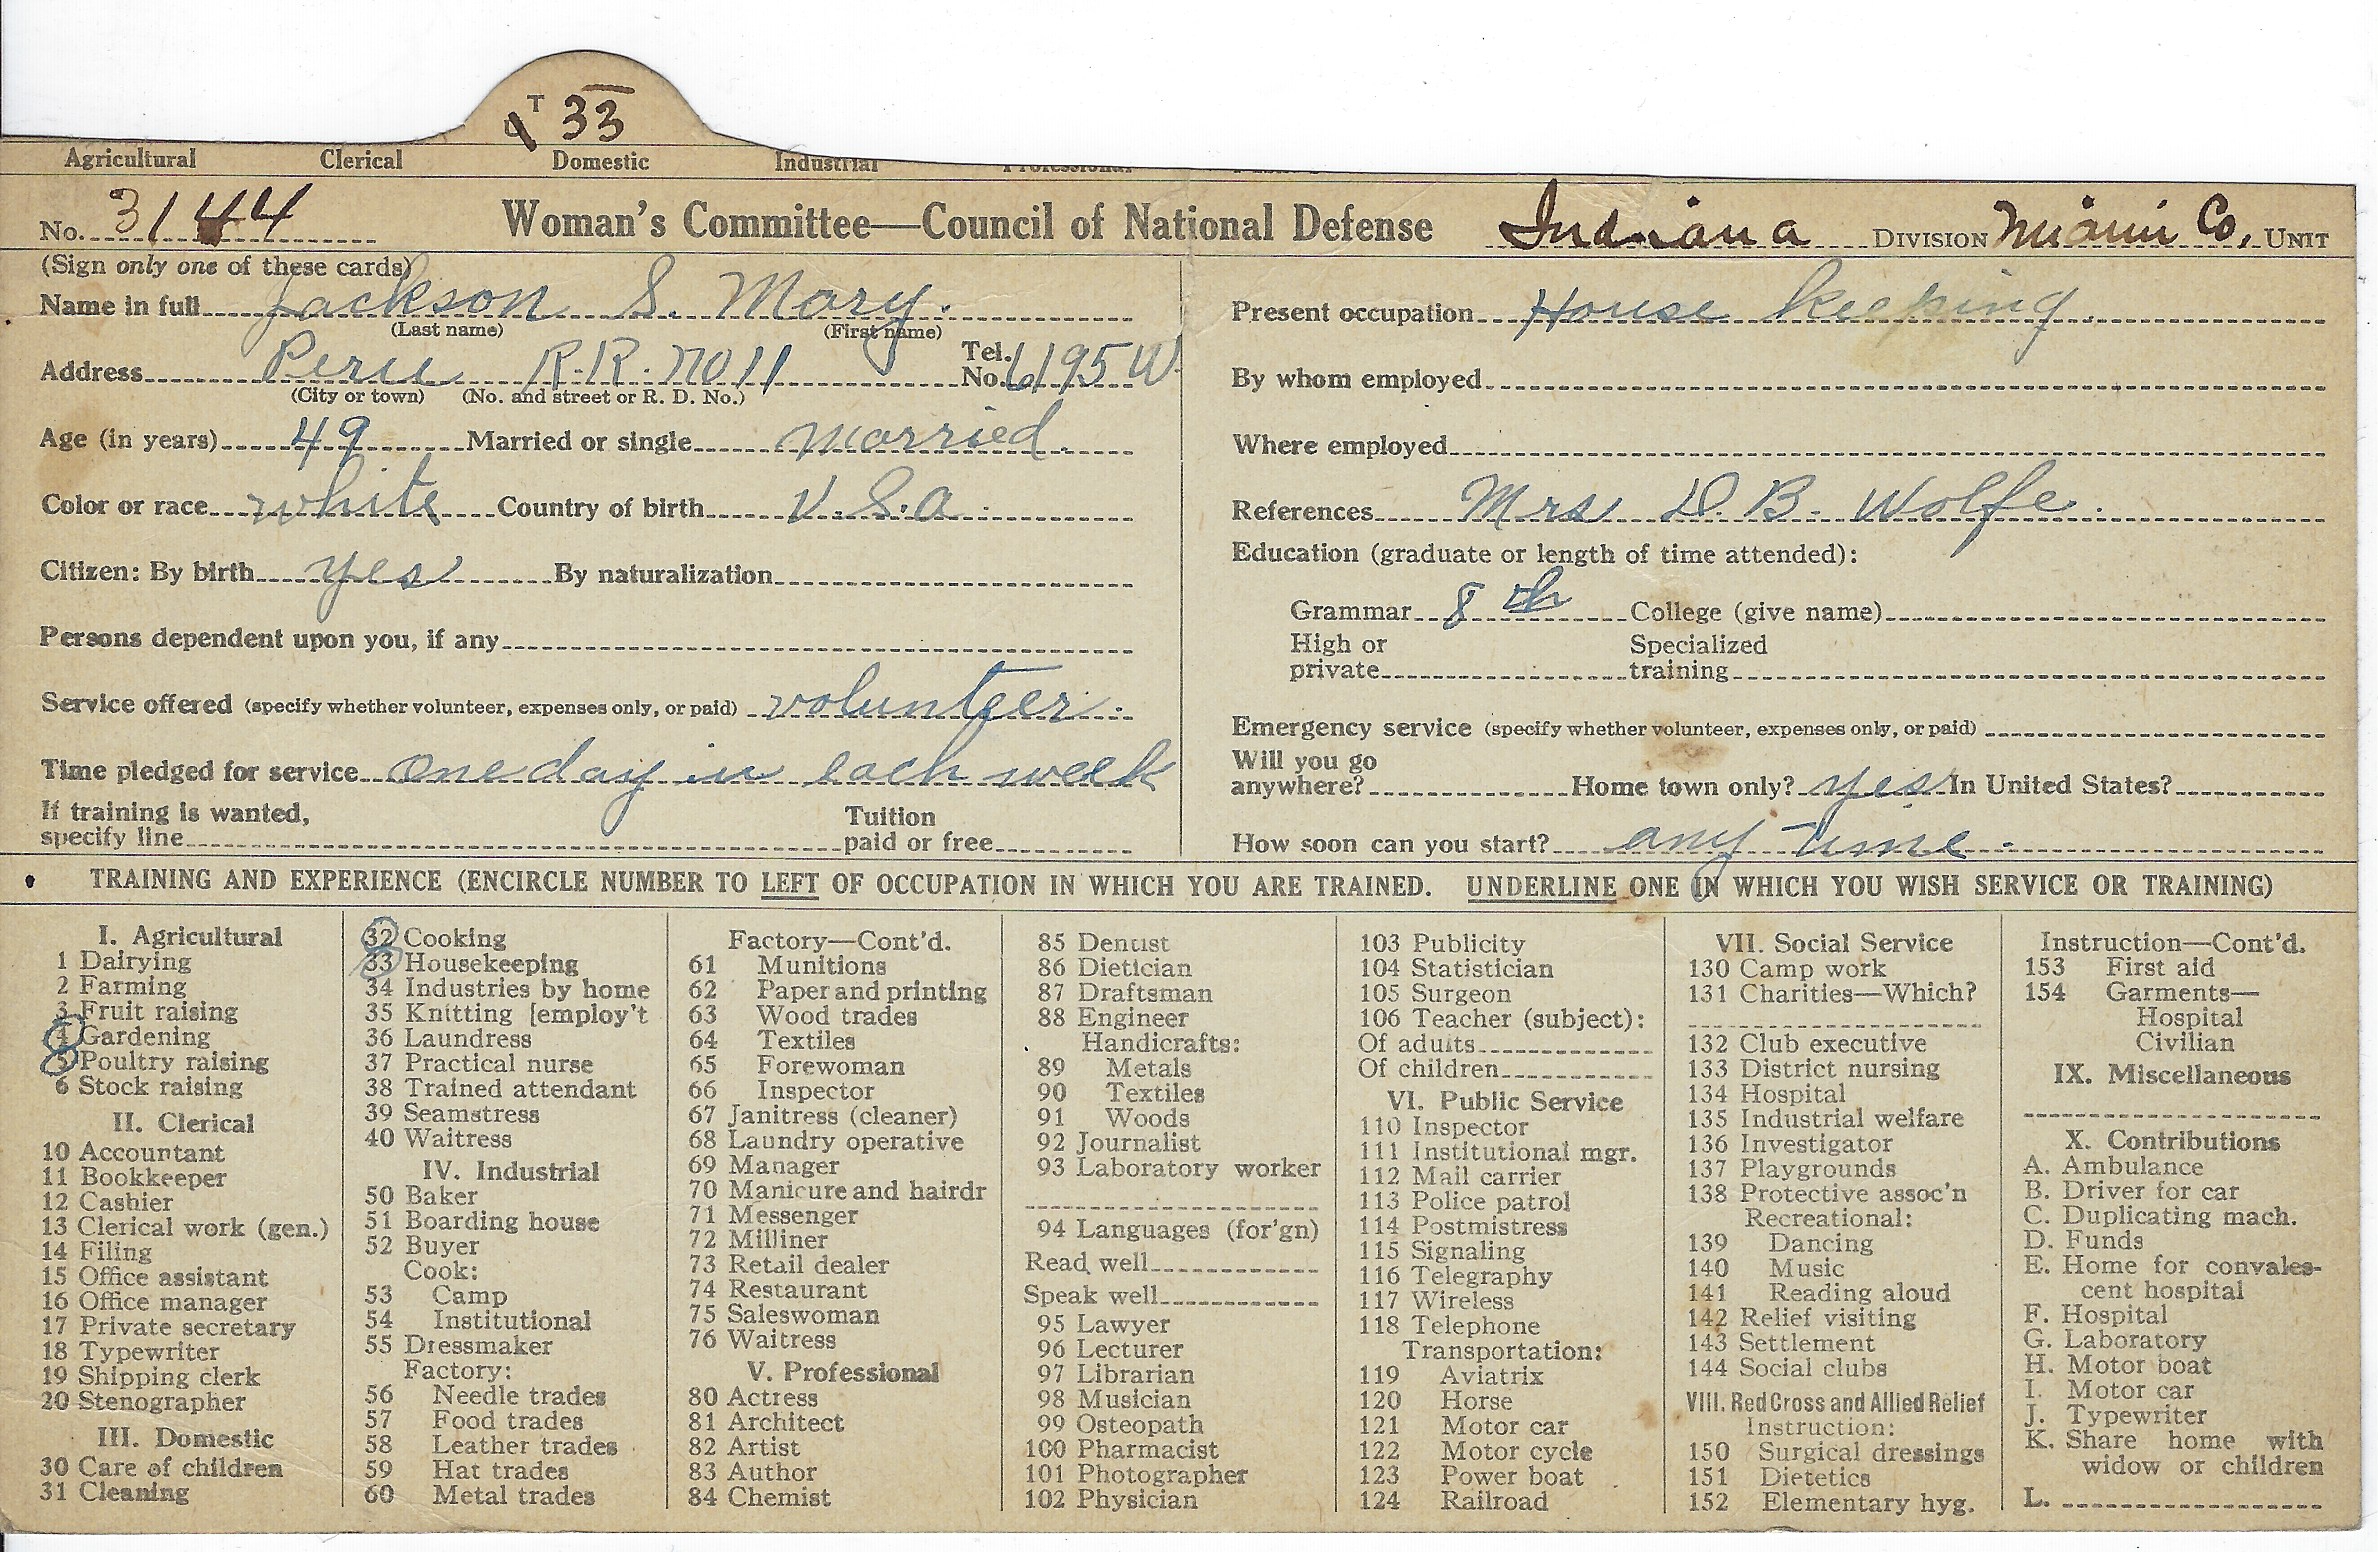 T 33
Agricultural Clerical Domestic Industrial Professional
No. 3144 Woman's Committee—Council of National Defense Indiana DIVISION Miami Co. UNIT
(Sign only one of these cards)
Name in full Jackson S. Mary.
(Last name) (First name)
Address Peru R.R. No 11 Tel. No. 6195 W
(City or town) (No. and street or R. D. No.)
Age (in years) 49 Married or single married.
Color or race white Country of birth U.S.a.
Citizen: By birth yes By naturalization
Persons dependent upon you, if any
Service offered (specify whether volunteer, expenses only, or paid) volunteer.
Time pledged for service one day in each week
If training is wanted,
specify line Tuition paid or free
Present occupation House keeping.
By whom employed
Where employed
References Mrs D. B. Wolfe.
Education (graduate or length of time attended):
Grammar 8th College (give name)
High or private Specialized training
Emergency service (specify whether volunteer, expenses only, or paid)
Will you go
anywhere? Home town only? yes In United States?
How soon can you start? any time.
TRAINING AND EXPERIENCE (ENCIRCLE NUMBER TO LEFT OF OCCUPATION IN WHICH YOU ARE TRAINED. UNDERLINE ONE IN WHICH YOU WISH SERVICE OR TRAINING)
I. Agricultural
1 Dairying
2 Farming
3 Fruit raising
4 Gardening
5 Poultry raising
6 Stock raising
II. Clerical
10 Accountant
11 Bookkeeper
12 Cashier
13 Clerical work (gen.)
14 Filing
15 Office assistant
16 Office manager
17 Private secretary
18 Typewriter
19 Shipping clerk
20 Stenographer
III. Domestic
30 Care of children
31 Cleaning
32 Cooking
33 Housekeeping
34 Industries by home
35 Knitting [employ't
36 Laundress
37 Practical nurse
38 Trained attendant
39 Seamstress
40 Waitress
IV. Industrial
50 Baker
51 Boarding house
52 Buyer
Cook:
53 Camp
54 Institutional
55 Dressmaker
Factory:
56 Needle trades
57 Food trades
58 Leather trades
59 Hat trades
60 Metal trades
Factory—Cont'd.
61 Munitions
62 Paper and printing
63 Wood trades
64 Textiles
65 Forewoman
66 Inspector
67 Janitress (cleaner)
68 Laundry operative
69 Manager
70 Manicure and hairdr
71 Messenger
72 Milliner
73 Retail dealer
74 Restaurant
75 Saleswoman
76 Waitress
V. Professional
80 Actress
81 Architect
82 Artist
83 Author
84 Chemist
85 Dentist
86 Dietician
87 Draftsman
88 Engineer
Handicrafts:
89 Metals
90 Textiles
91 Woods
92 Journalist
93 Laboratory worker
94 Languages (for'gn)
Read well
Speak well
95 Lawyer
96 Lecturer
97 Librarian
98 Musician
99 Osteopath
100 Pharmacist
101 Photographer
102 Physician
103 Publicity
104 Statistician
105 Surgeon
106 Teacher (subject):
Of adults
Of children
VI. Public Service
110 Inspector
111 Institutional mgr.
112 Mail carrier
113 Police patrol
114 Postmistress
115 Signaling
116 Telegraphy
117 Wireless
118 Telephone
Transportation:
119 Aviatrix
120 Horse
121 Motor car
122 Motor cycle
123 Power boat
124 Railroad
VII. Social Service
130 Camp work
131 Charities—Which?
132 Club executive
133 District nursing
134 Hospital
135 Industrial welfare
136 Investigator
137 Playgrounds
138 Protective assoc'n
Recreational:
139 Dancing
140 Music
141 Reading aloud
142 Relief visiting
143 Settlement
144 Social clubs
VIII. Red Cross and Allied Relief
Instruction:
150 Surgical dressings
151 Dietetics
152 Elementary hyg.
Instruction—Cont'd.
153 First aid
154 Garments—
Hospital
Civilian
IX. Miscellaneous
X. Contributions
A. Ambulance
B. Driver for car
C. Duplicating mach.
D. Funds
E. Home for convales-
cent hospital
F. Hospital
G. Laboratory
H. Motor boat
I. Motor car
J. Typewriter
K. Share home with
widow or children
L.